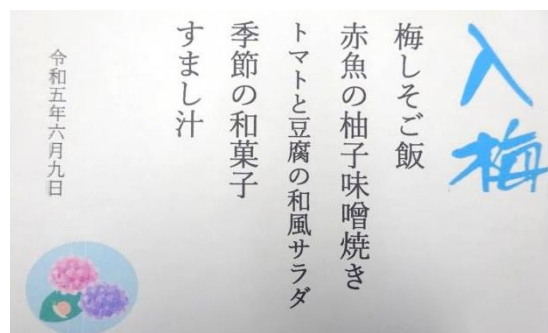 入梅
梅しそご飯
赤魚の柚子味噌焼き
トマトと豆腐の和風サラダ
季節の和菓子
すまし汁
令和五年六月九日